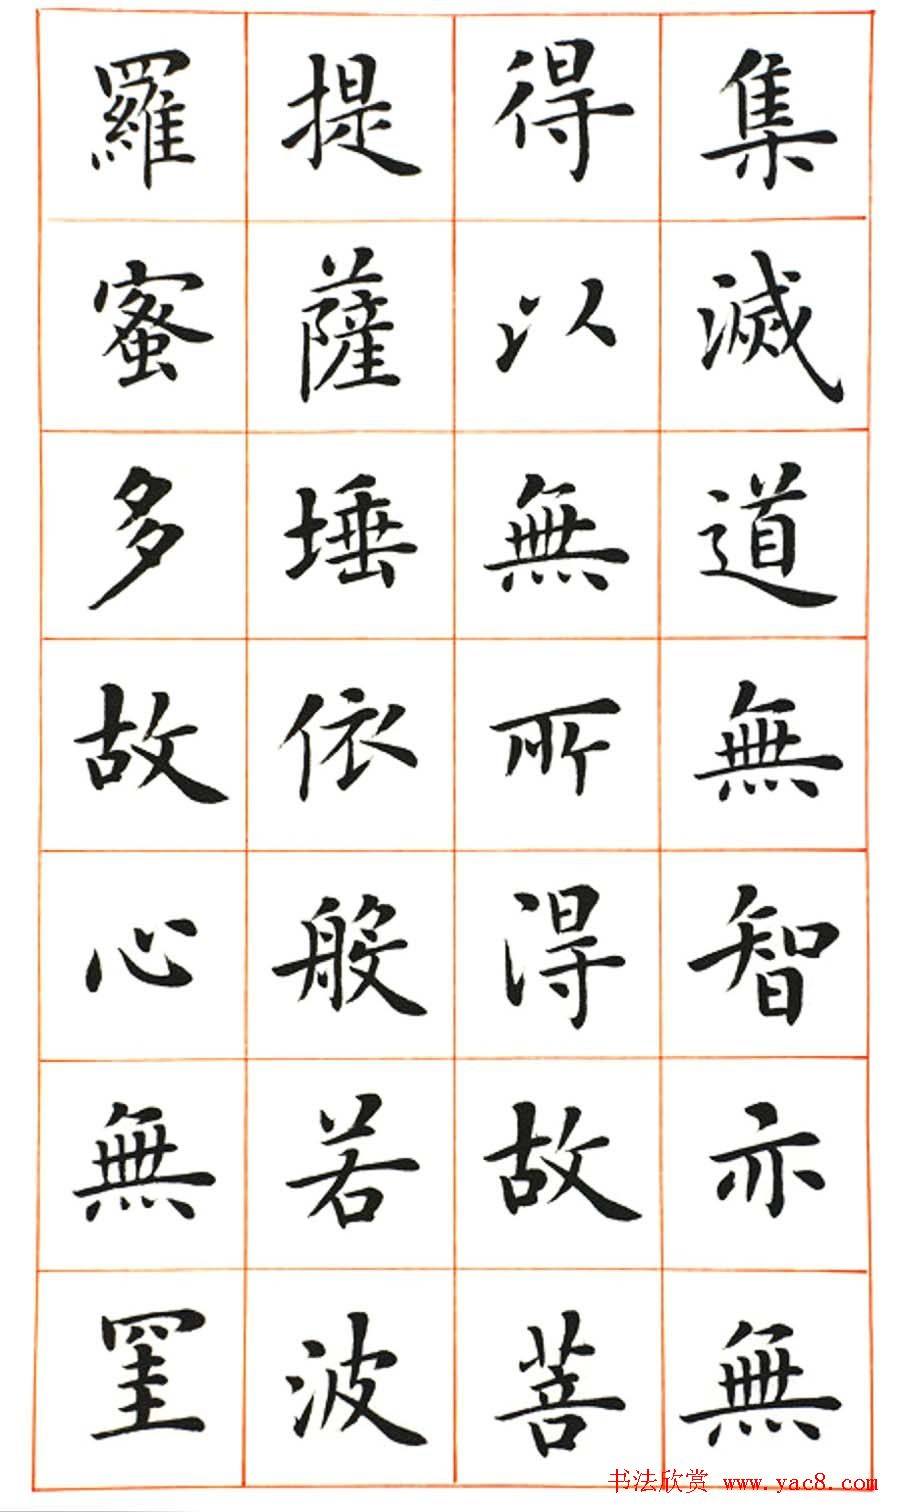 集滅道無智亦無
得以無所得故菩
提薩埵依般若波
羅蜜多故心無罣
书法欣赏 www.yac8.com